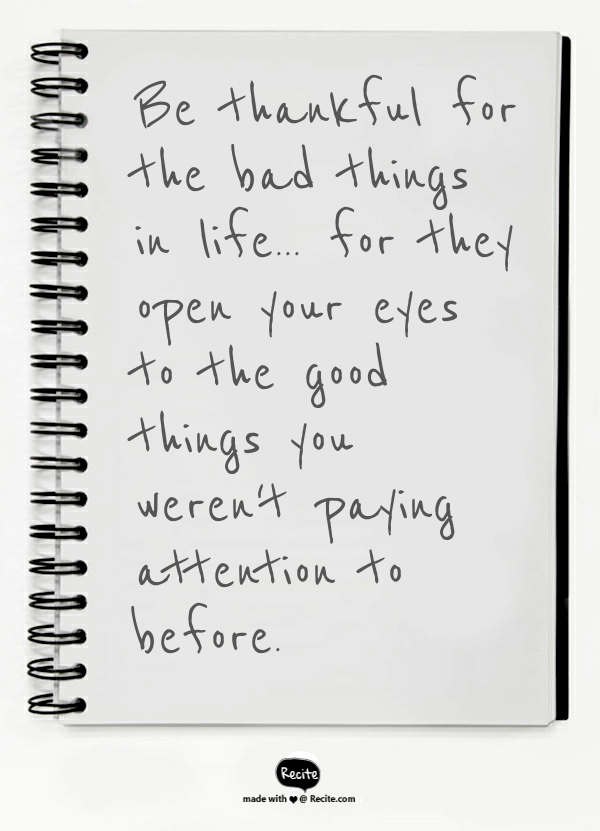 Be thankful for
the bad things
in life... for they
open your eyes
to the good
things you
weren't paying
attention to
before.
Recite
made with ♥ @ Recite.com